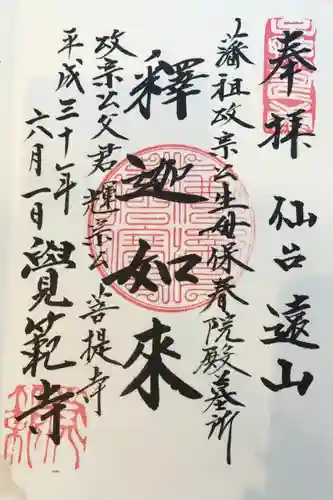 奉拝 仙台 遠山
藩祖政宗公生母保春院殿墓所
釋迦如来
政宗公父君輝宗公菩提寺
平成三十年
六月一日
覺範寺